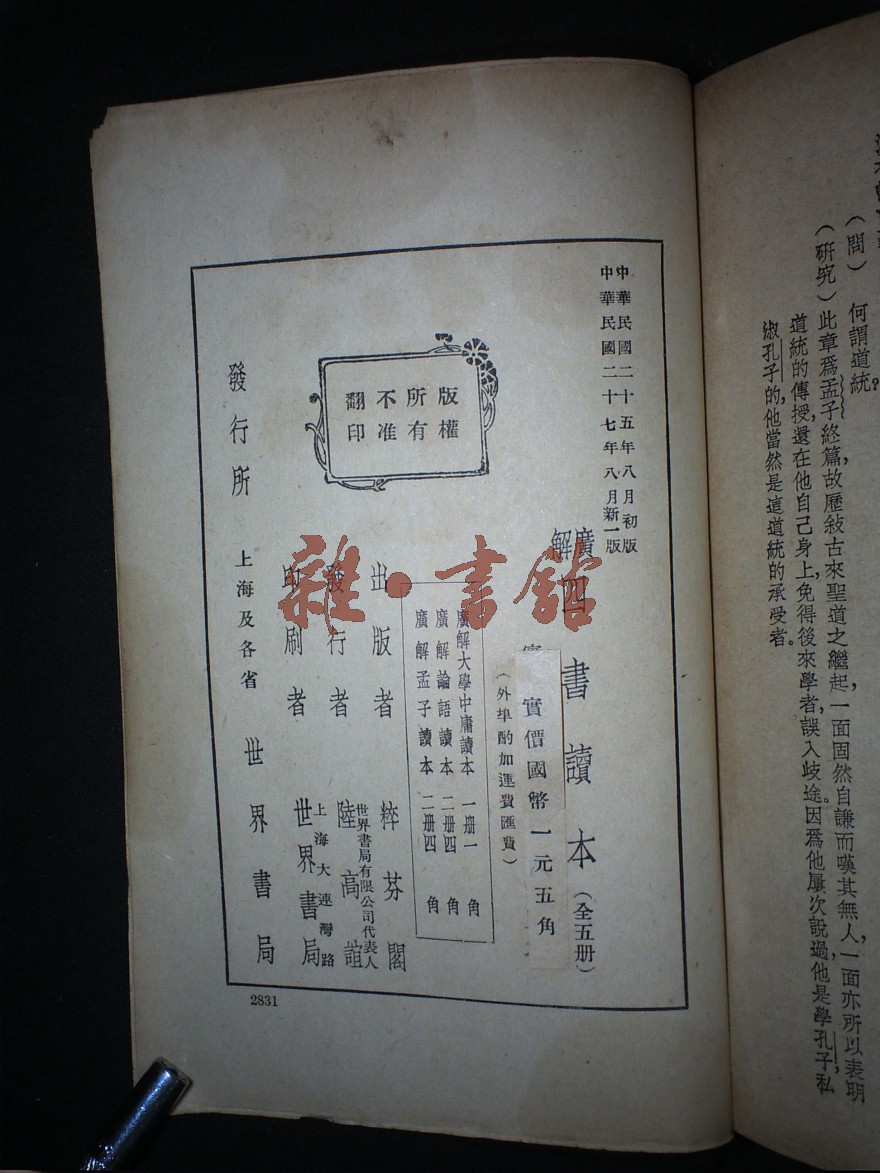 (問) 何謂道統?
(研究)此章爲孟子終篇,故歷敍古來聖道之繼起,一面固然自謙而嘆其無人,一面亦所以表明
道統的傳授,還在他自己身上,免得後來學者,誤入歧途。因爲他屢次說過,他是學孔子,私
淑孔子的,他當然是這道統的承受者。
中華民國二十五年八月初版
中華民國二十七年八月新一版
廣解四書讀本(全五册)
實價國幣一元五角
(外埠酌加運費匯費)
廣解大學中庸讀本 一册一角
廣解論語讀本 二册四角
廣解孟子讀本 二册四角
版權
所有
不准
翻印
出版者 粹芬閣
發行者 世界書局有限公司代表人 陸高誼
印刷者 上海大連灣路 世界書局
發行所 上海及各省 世界書局
2831
雜·書館